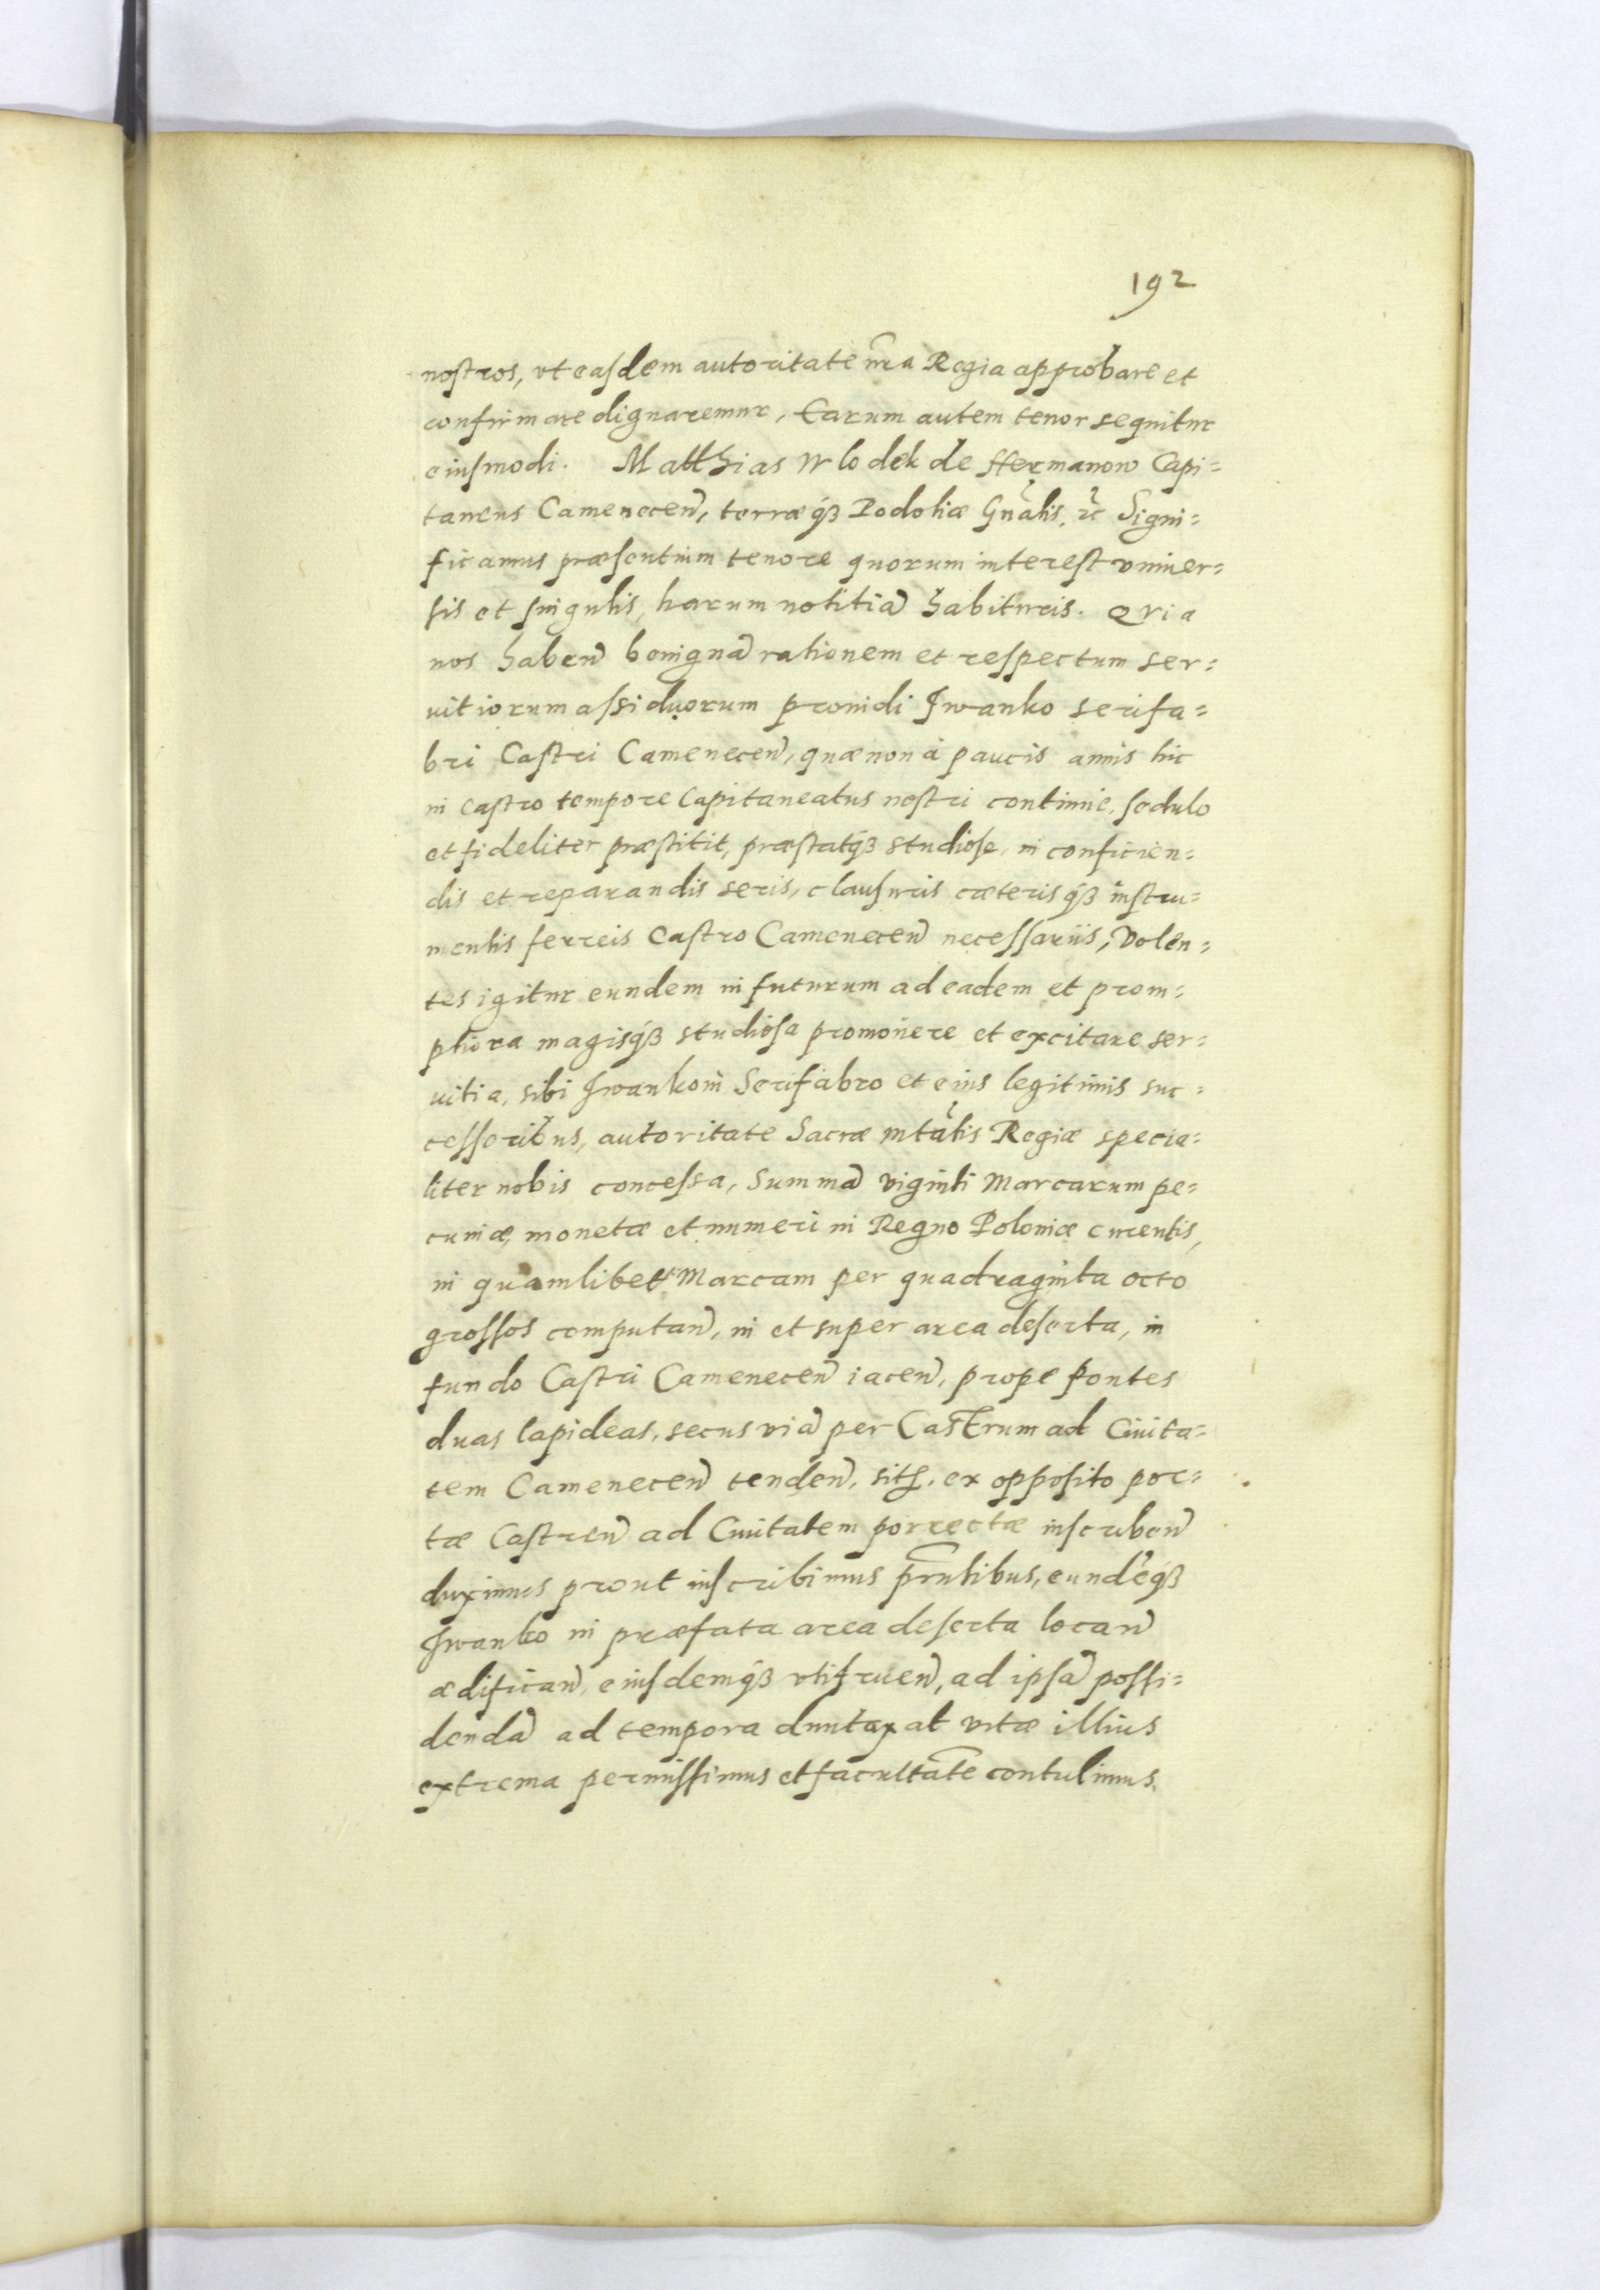 192
nostros, vt easdem autoritate nr̃a Regia approbare et
confirmare dignaremur, Earum autem tenor sequitur
eiusmodi. Matthias Wlodek de Hermanow Capi=
taneus Camenecen̄, terræq́ꝫ Podoliæ Gn̄alis, ꝛc Signi=
ficamus præsentium tenore quorum interest vniuer=
sis et singulis, harum notitiā habituris. Qvia
nos haben̄ benignā rationem et respectum ser=
uitiorum assiduorum prouidi Iwanko serifa=
bri Castri Camenecen̄, quæ non à paucis annis hic
in castro tempore Capitaneatus nostri continue, sedulo
et fideliter præstitit, præstatq́ꝫ studiose, in conficien=
dis et reparandis seris, clausuris cæterisq́ꝫ instru=
mentis ferreis Castro Camenecen̄ necessariis, Volen=
tes igitur eundem in futurum ad eadem et prom=
ptiora magisq́ꝫ studiosa promouere et excitare ser=
uitia, sibi Iwankoni Serifabro et eius legitimis suc=
cessoribus, autoritate Sacræ Mtātis Regiæ specia=
liter nobis concessa, Summā viginti Marcarum pe=
cuniæ, monetæ et numeri in Regno Poloniæ curentis,
in quamlibet Marcam per quadraginta octo
grossos computan̄, in et super area deserta, in
fundo Castri Camenecen̄ iacen̄, prope fontes
duas lapideas, secus viā per Castrum ad Ciuita=
tem Camenecen̄ tenden̄, sitę, ex opposito por=
tæ Castren̄ ad Ciuitatem porrectæ inscriben̄
duximus prout inscribimus pr̃ntibus, eundēq́ꝫ
Iwanko in præfata area deserta locan̄
ædifican̄, eiusdemq́ꝫ vtifruen̄, ad ipsā possi=
dendā ad tempora duntaxat vitæ illius
extrema permissimus et facultatē contulimus.